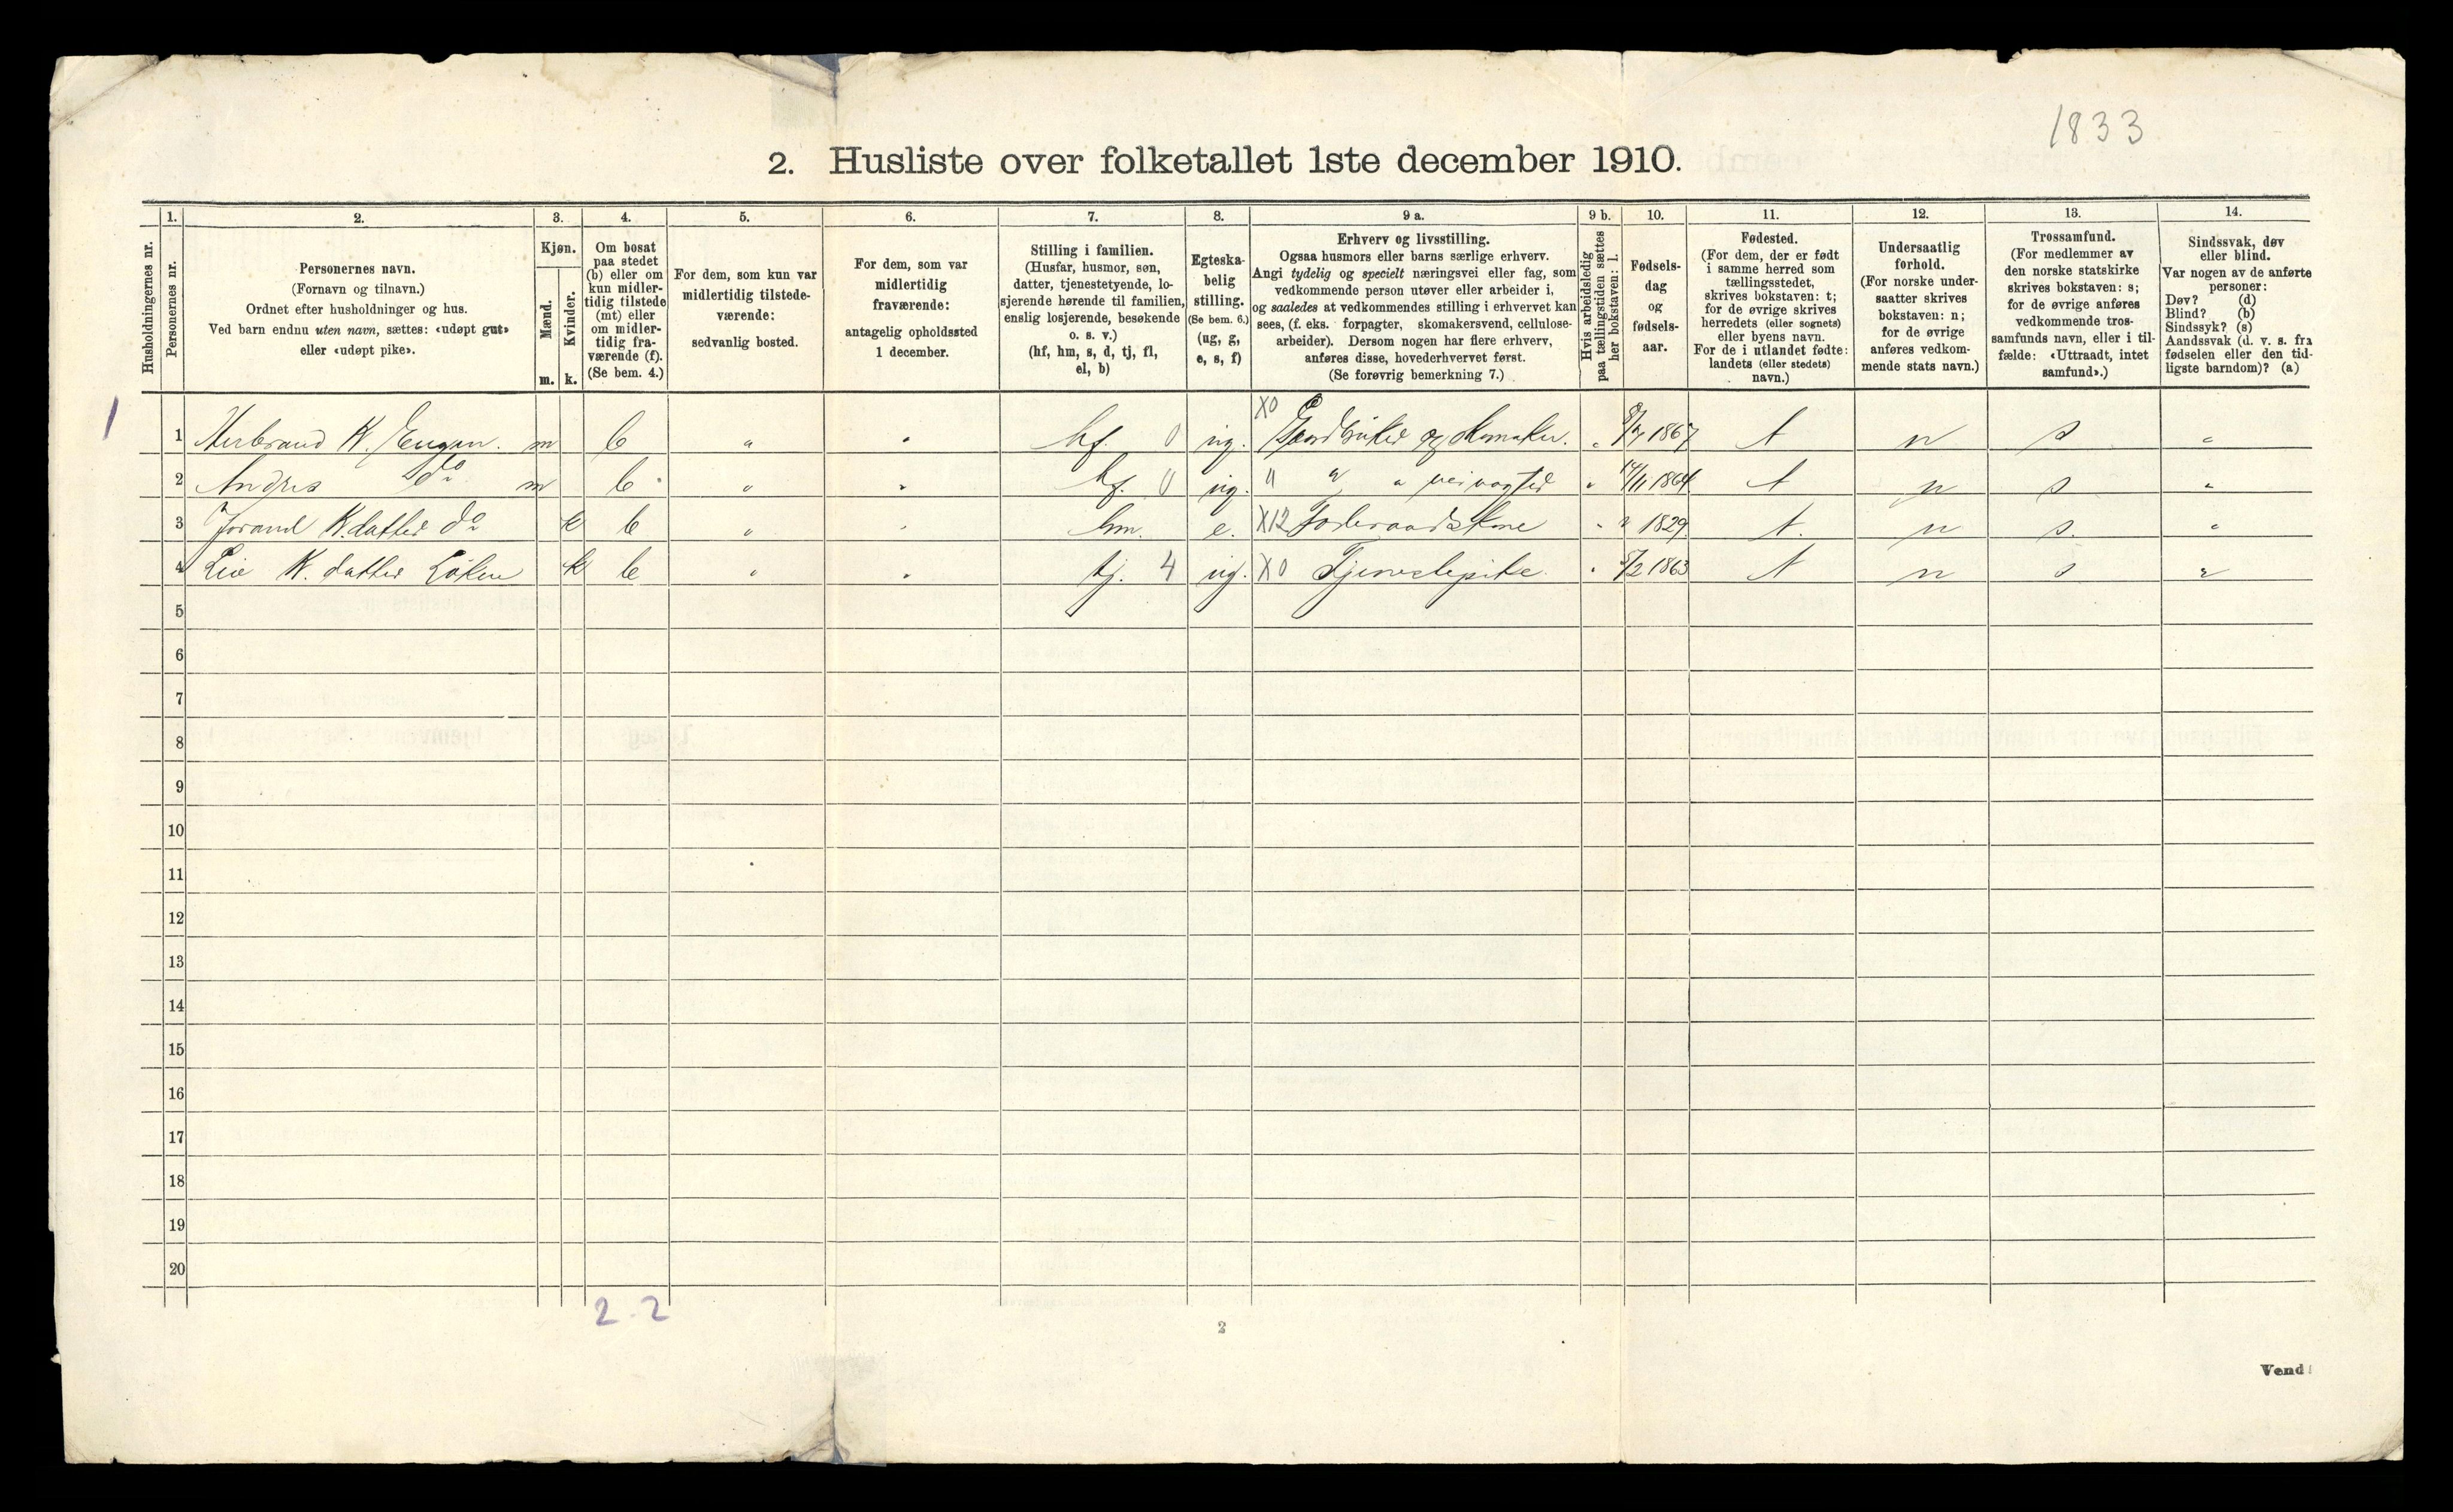 1833
2. Husliste over folketallet 1ste december 1910.
Husholdningernes nr.
1.
Personernes nr.
2.
Personernes navn.
(Fornavn og tilnavn.)
Ordnet efter husholdninger og hus.
Ved barn endnu uten navn, sættes: «udøpt gut»
eller «udøpt pike».
3.
Kjøn.
Mænd.
m.
Kvinder.
k.
4.
Om bosat
paa stedet
(b) eller om
kun midler-
tidig tilstede
(mt) eller
om midler-
tidig fra-
værende (f).
(Se bem. 4.)
5.
For dem, som kun var
midlertidig tilstede-
værende:
sedvanlig bosted.
6.
For dem, som var
midlertidig
fraværende:
antagelig opholdssted
1 december.
7.
Stilling i familien.
(Husfar, husmor, søn,
datter, tjenestetyende, lo-
sjerende hørende til familien,
enslig losjerende, besøkende
o. s. v.)
(hf, hm, s, d, tj, fl,
el, b)
8.
Egteska-
belig
stilling.
(Se bem. 6.)
(ug, g,
e, s, f)
9 a.
Erhverv og livsstilling.
Ogsaa husmors eller barns særlige erhverv.
Angi tydelig og specielt næringsvei eller fag, som
vedkommende person utøver eller arbeider i,
og saaledes at vedkommendes stilling i erhvervet kan
sees, (f. eks. forpagter, skomakersvend, cellulose-
arbeider). Dersom nogen har flere erhverv,
anføres disse, hovederhvervet først.
(Se forøvrig bemerkning 7.)
9 b.
Hvis arbeidsledig
paa tællingstiden sættes
her bokstaven: l.
10.
Fødsels-
dag
og
fødsels-
aar.
11.
Fødested.
(For dem, der er født
i samme herred som
tællingsstedet,
skrives bokstaven: t;
for de øvrige skrives
herredets (eller sognets)
eller byens navn.
For de i utlandet fødte:
landets (eller stedets)
navn.)
12.
Undersaatlig
forhold.
(For norske under-
saatter skrives
bokstaven: n;
for de øvrige
anføres vedkom-
mende stats navn.)
13.
Trossamfund.
(For medlemmer av
den norske statskirke
skrives bokstaven: s;
for de øvrige anføres
vedkommende tros-
samfunds navn, eller i til-
fælde: «Uttraadt, intet
samfund».)
14.
Sindssvak, døv
eller blind.
Var nogen av de anførte
personer:
Døv? (d)
Blind? (b)
Sindssyk? (s)
Aandssvak (d. v. s. fra
fødselen eller den tid-
ligste barndom)? (a)
1 1 Herbrand K. Eugen. m b " " hf. 0 ug. X0 Gaardbruker og skomaker. " 1867 t n s "
2 Andres do m b " " hf. 0 ug. " " " veivogter " 14/11 1864 t n s "
3 Jorand K.datter do k b " " hm. e. X12 Foderaadskone " 1829 t. n s. "
4 Liv K. datter Löken k b " " tj. 4 ug. X0 Tjenestepike. " 5/2 1863 t n s "
5
6
7
8
9
10
11
12
13
14
15
16
17
18
19
20
2 - 2
2
Vend!